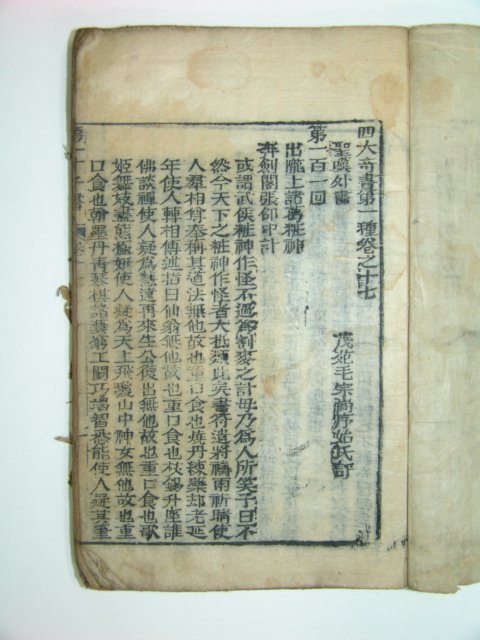 四大奇書第一種卷之十七
聖嘆外書
茂苑毛宗崗序始氏評
第一百一回
出隴上諸葛粧神
奔劍閣張郃中計
或謂武侯粧神作怪不過爲割麥之計毋乃爲人所笑予曰不
然今天下之粧神作怪者大抵類此矣畫符遣將禱雨祈晴使
人羣相尊奉稱其道法無他故也重口食也燒丹練藥却老延
年使人轉相傳述指曰仙翁無他故也重口食也杖錫升座誰
佛談禪使人疑爲慧遠再來生公復出無他故也重口食也歌
姬舞妓盡態極妍使人疑爲天上飛瓊山中神女無他故也重
口食也翰墨丹靑琴棋諸藝窮工鬪巧竭智悉能使人疑其筆